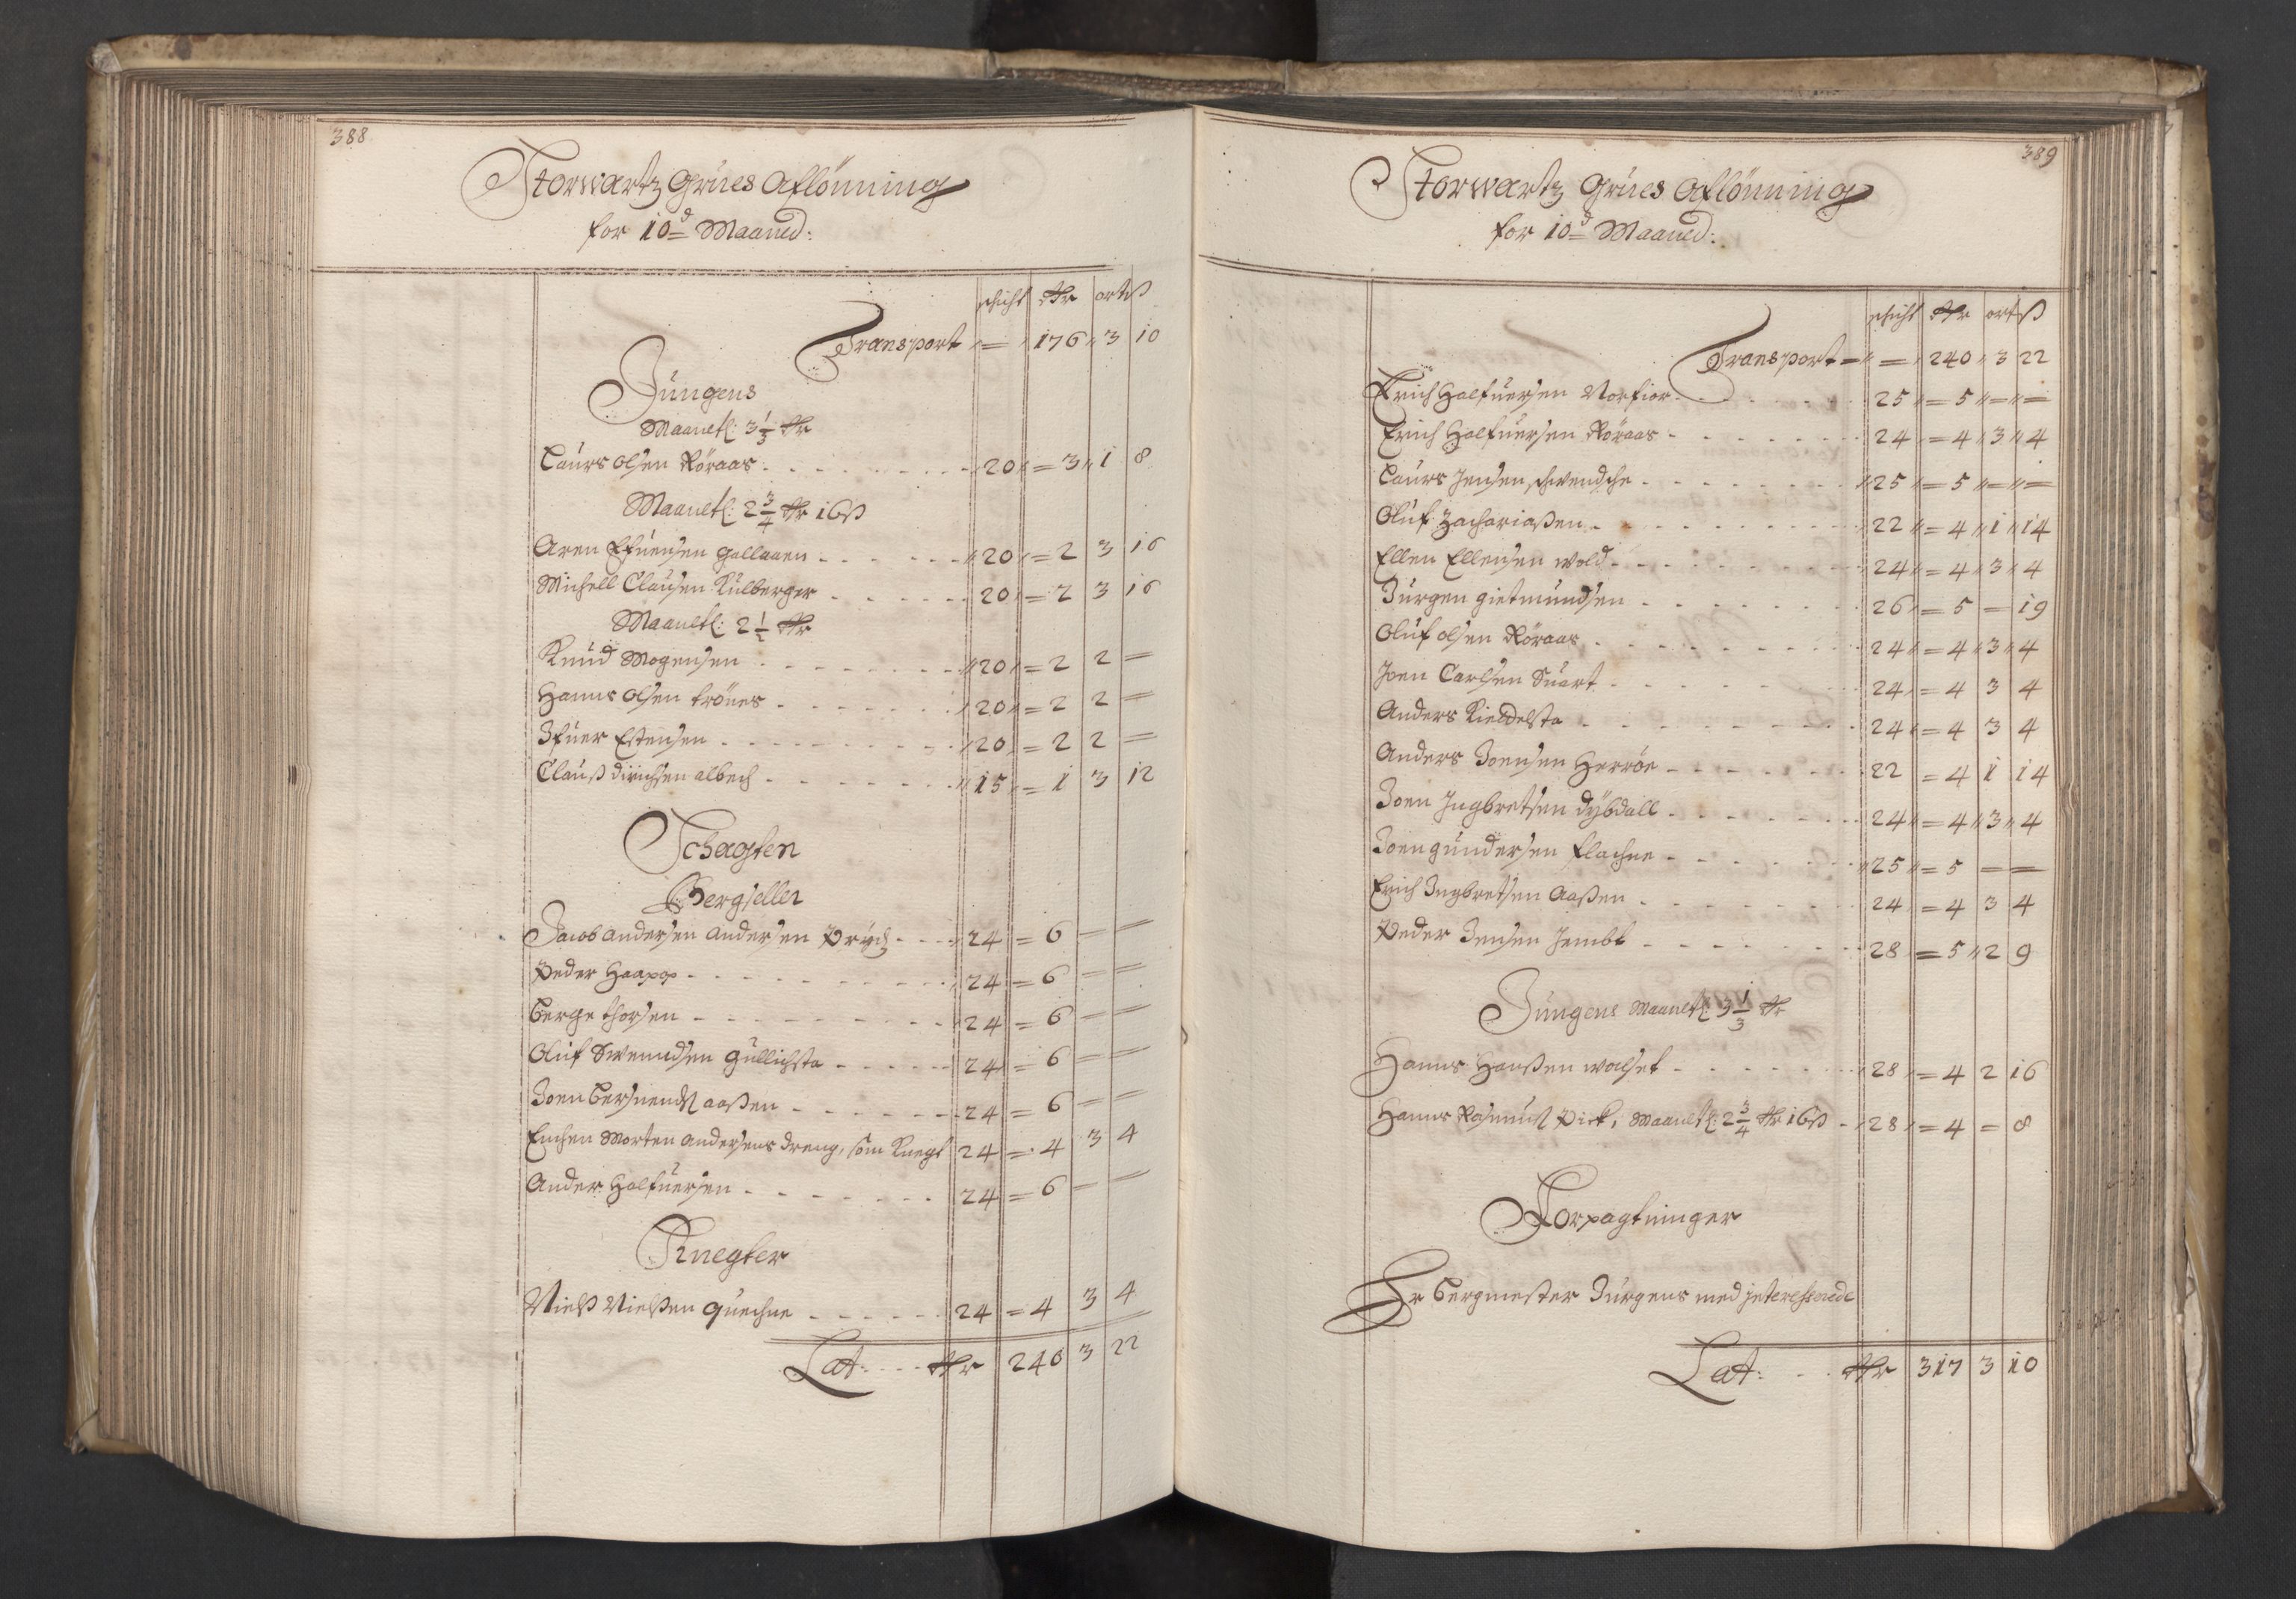 388
Storwartz Grues Aflönning
for 10d Maaned:
schicht Rdr ort ß
Transport = 176 3 10
Jungens
Maanetl: 3 1/3 Rdr
Laurs Olsen Röraas - 20 = 3 1 8
Maanetl: 2 3/4 Rdr 16 ß
Aren Efuensen Gallaaen - 20 = 2 3 16
Michell Clausen Kulberger - 20 = 2 3 16
Maanetl: 2 1/2 Rdr
Knud Mogensen - 20 = 2 2 =
Hanns Olsen trönes - 20 = 2 2 =
Ifuer Estensen - 20 = 2 2 =
Clauß dirichsen albech - 15 = 1 3 12
Schagten
Bergseller
Jacob andersen andersen - 24 = 6 = =
Peder Haapp - 24 = 6 = =
Berge thorsen - 24 = 6 = =
Oluf Swendsen Gullichsta - 24 = 6 = =
Joen aaßen - 24 = 6 = =
Morten andersens dreng, som Knegt 24 = 4 3 4
Ander Halfuersen - 24 = 6 = =
Knegter
Nielß Nielßen quechne - 24 = 4 3 4
Lat: - Rdr 240 3 22
389
Storwartz Grues Aflönning
for 10d Maaned:
schicht Rdr ort ß
Transport = = 240 3 22
Erich Halfuersen Norfior - 25 = 5 = =
Erich Halfuersen Röraas - 24 = 4 3 4
Laurs Jensen schwendsche - 25 = 5 = =
Oluf Zachariaßen - 22 = 4 1 14
Ellen Ellensen wold - 24 = 4 3 4
Jürgen gietmundsen - 26 = 5 = 19
Oluf olsen Röraas - 24 = 4 3 4
Joen Carlsen Suart - 24 = 4 3 4
Anders Kieldelsta - 24 = 4 3 4
Anders Joensen Herröe - 22 = 4 1 14
Joen Ingbretsen dybdall - 24 = 4 3 4
Joen gundersen flachne - 25 = 5 = =
Erich Ingbretsen Aaßen - 24 = 4 3 4
Peder Jensen Jembt - 28 = 5 2 9
Jungens Maanetl: 3 1/3 Rdr
Hanns Hanßen wolset - 28 = 4 2 16
Hanns Rasmus Pick, Maanetl: 2 3/4 Rdr 16 ß - 28 = 4 = 8
Forpagtninger
Hr Bergmester Jürgens med
Lat: - Rdr 317 3 10